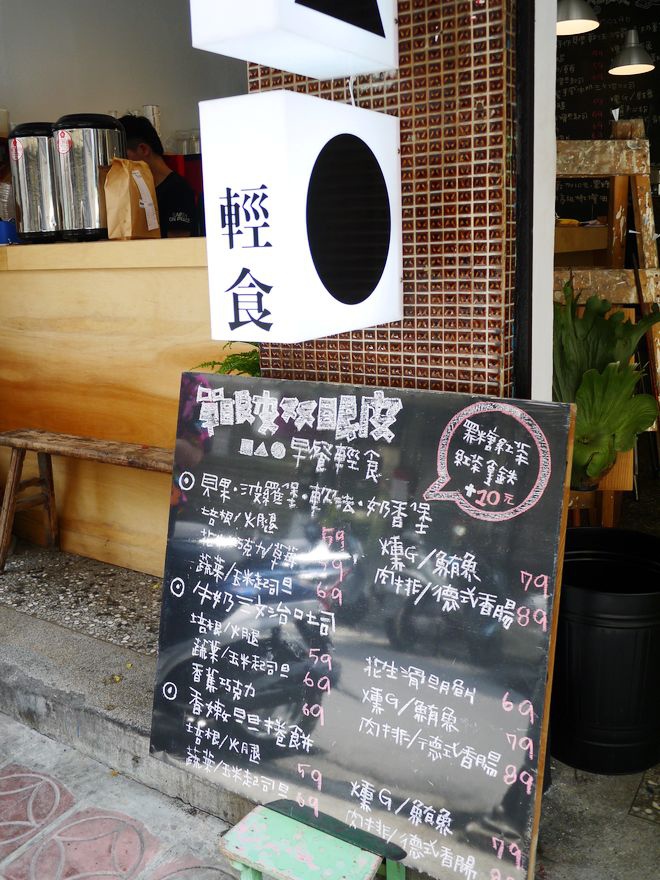 輕食
單眼皮双眼皮
早餐輕食
黑糖紅茶
紅茶拿鉄
+20元
貝果·波羅堡·軟法·奶香堡
培根/火腿 59
蔬菜/玉米起司旦 69
燻G/鮪魚 79
肉排/德式香腸 89
牛奶三文治吐司
培根/火腿 59
蔬菜/玉米起司旦 69
香蕉巧克力 69
花生滑旦 69
燻G/鮪魚 79
肉排/德式香腸 89
香嫩旦捲餅
培根/火腿 59
蔬菜/玉米起司旦 69
燻G/鮪魚 79
肉排/德式香腸